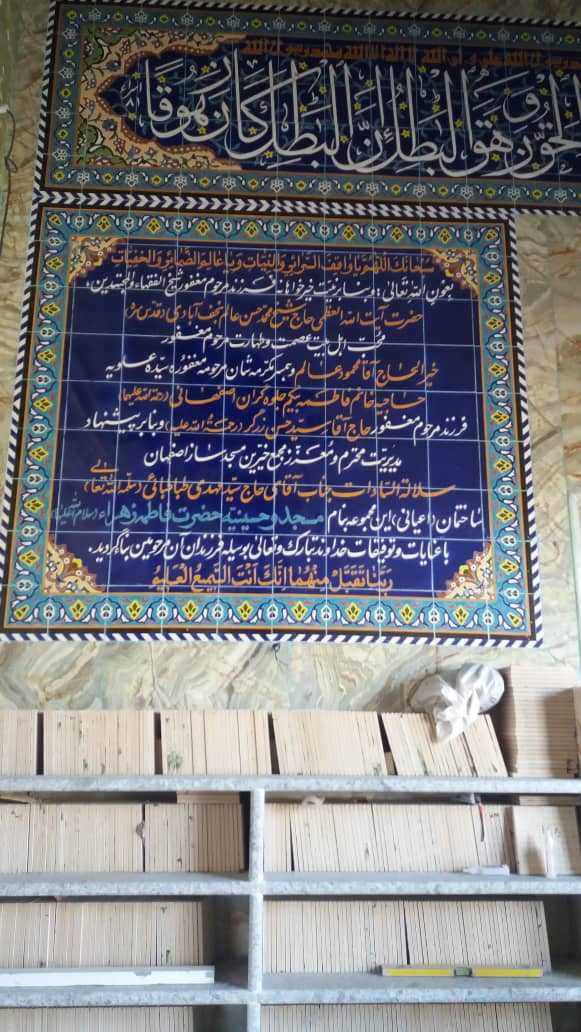 لا اله الا الله محمد رسول الله علی ولی الله
الحق و زهق الباطل ان الباطل کان زهوقا
سُبحانَکَ اللّهُمَّ یا واقِفَ السَّرائِرِ وَالنِّیّاتِ وَیا عالِمَ الضَّمائِرِ وَالخَفِیّاتِ
بعون الله تعالی؛ و بنا بر نیت خیرخواهانه فرزند مرحوم مغفور شیخ الفقهاء و المجتهدین،
حضرت آیت الله العظمی حاج شیخ محمد حسن عالم نجف آبادی (قدس سره)
محب اهل بیت عصمت و طهارت مرحوم مغفور
خیر الحاج آقا محمود عالم و همسر مکرمه شان مرحومه مغفوره سیده علویه
حاجیه خانم فاطمه بیگم جلوه گران اصفهانی (رحمة الله علیها)
فرزند مرحوم مغفور حاج آقا سید حسن زرگر (رحمة الله علیه) و بنا بر پیشنهاد
مدیریت محترم و معزز مجمع خیرین مسجد ساز اصفهان
سلالة السادات جناب آقای حاج سید مهدی طباطبائی (سلمه الله تعالی)
ساختمان (اعیانی) این مجموعه بنام مسجد و حسینیه حضرت فاطمه زهراء (سلام الله علیها)
با عنایات و توفیقات خداوند تبارک و تعالی بوسیله فرزندان آن مرحومین بنا گردید.
رَبَّنا تَقَبَّل مِنهُما اِنَّکَ اَنتَ السَّمیعُ العَلیمُ